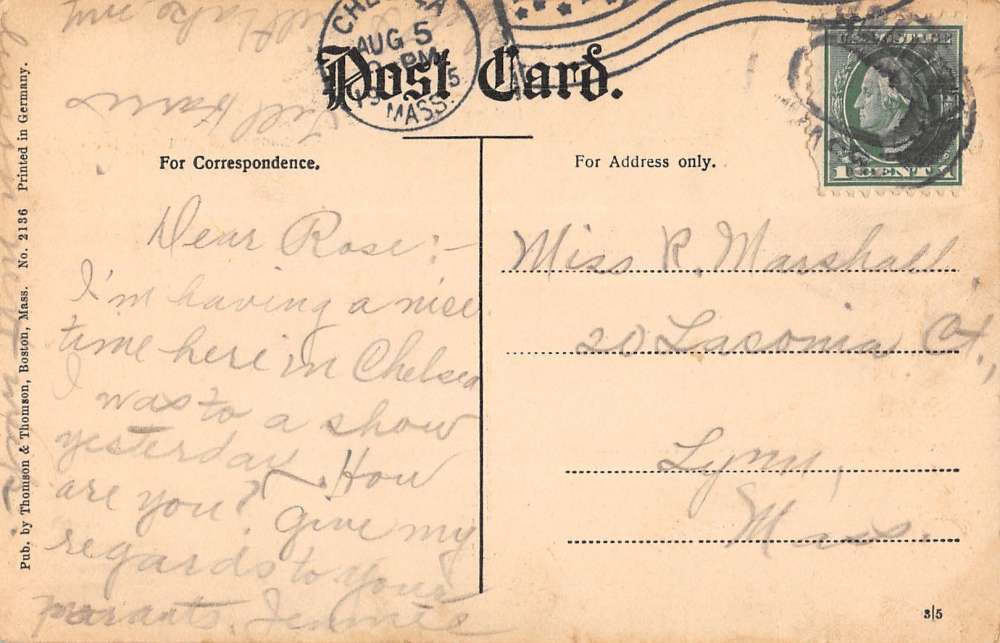 CHELSEA
AUG 5
PM
MASS.
Post Card.
U.S. POSTAGE
1 CENT 1
For Correspondence.
For Address only.
Dear Rose:-
I'm having a nice
time here in Chelsea
I was to a show
yesterday. How
are you? Give my
regards to your
parants. Jennie
Miss R. Marshall
20 Laconia Ct.,
Lynn,
Mass.
Pub. by Thomson & Thomson, Boston, Mass. No. 2136 Printed in Germany.
3|5